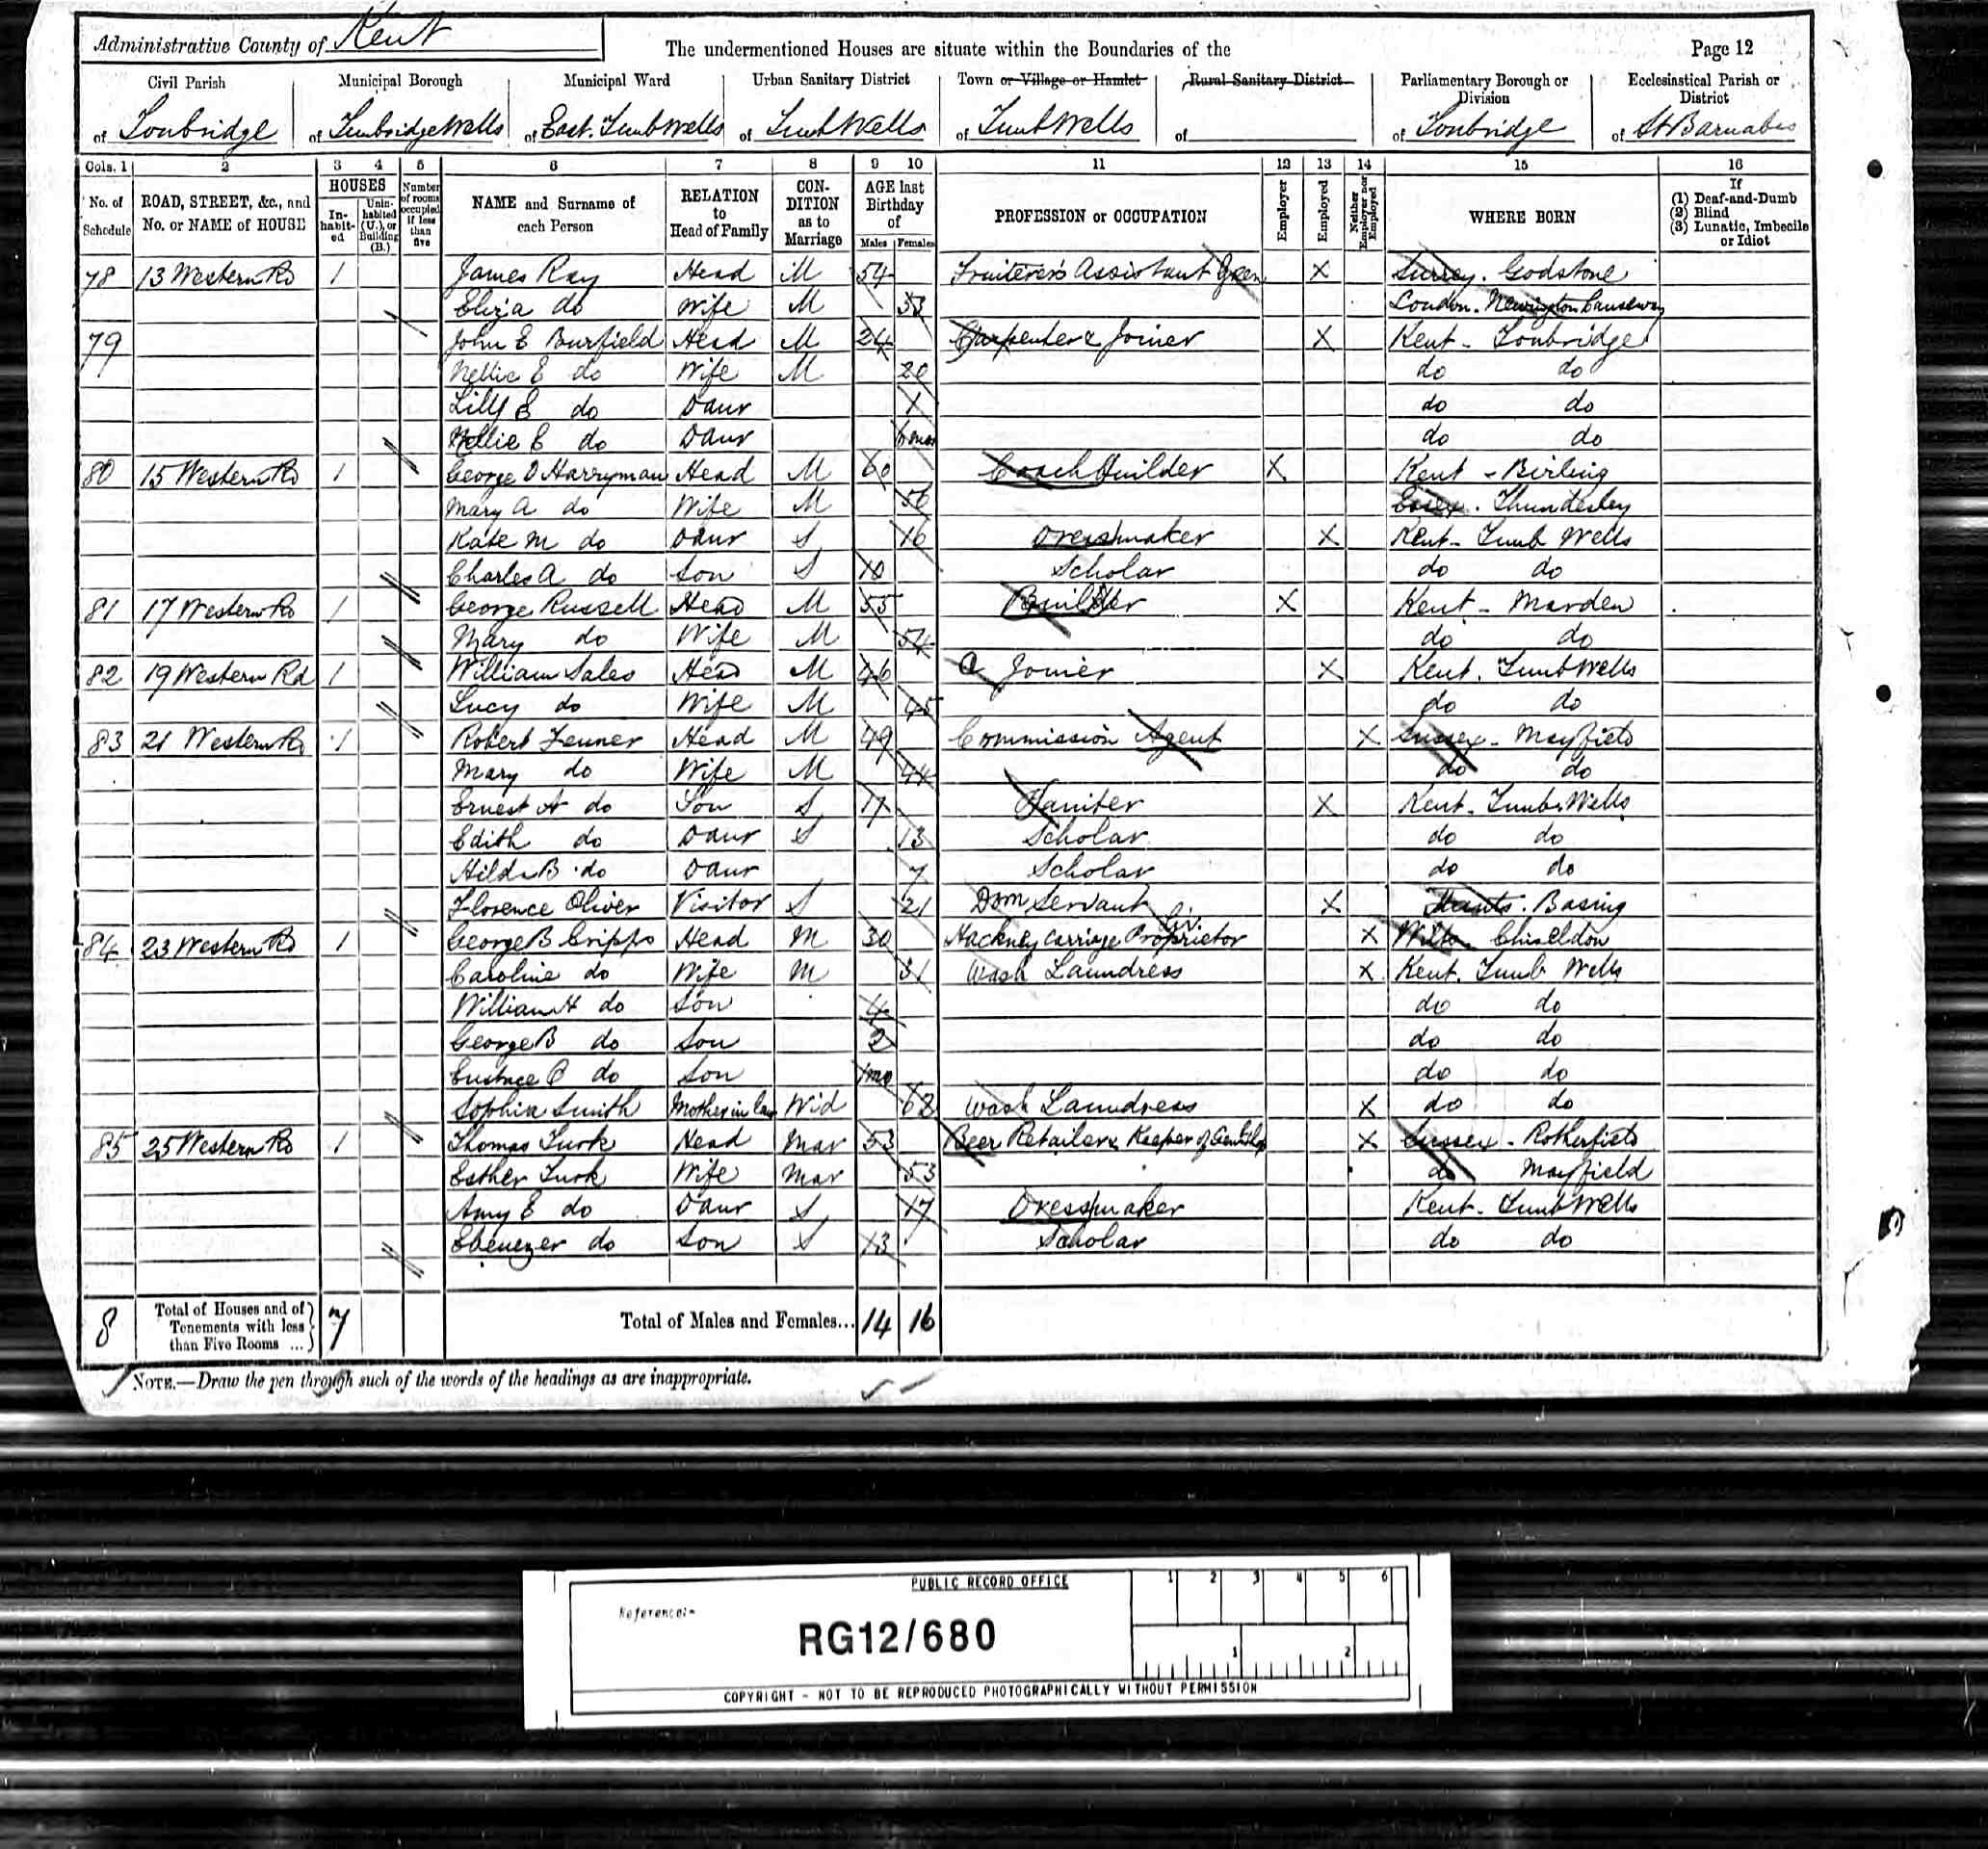 Administrative County of Kent
The undermentioned Houses are situate within the Boundaries of the
Page 12
Civil Parish of Tonbridge
Municipal Borough of Tunbridge Wells
Municipal Ward of East. Tunb Wells
Urban Sanitary District of Tunb Wells
Town or Village or Hamlet of Tunb Wells
Rural Sanitary District of
Parliamentary Borough or Division of Tonbridge
Ecclesiastical Parish or District of St Barnabas
Cols. 1 2 3 4 5 6 7 8 9 10 11 12 13 14 15 16
No. of Schedule
ROAD, STREET, &c., and No. or NAME of HOUSE
HOUSES
In-habit-ed
Unin-habited (U.), or Building (B.)
Number of rooms occupied if less than five
NAME and Surname of each Person
RELATION to Head of Family
CON-DITION as to Marriage
AGE last Birthday of
Males Females
PROFESSION or OCCUPATION
Employer
Employed
Neither Employer nor Employed
WHERE BORN
If
(1) Deaf-and-Dumb
(2) Blind
(3) Lunatic, Imbecile or Idiot
78 13 Western Rd 1 James Ray Head M 54 Fruiterer's Assistant Green X Surrey. Godstone
Eliza do Wife M 53 London. Newington Causeway
79 John E Burfield Head M 24 Carpenter & Joiner X Kent - Tonbridge
Nellie E do Wife M 20 do do
Lilly E do Daur 1 do do
Nellie E do Daur 6 mos do do
80 15 Western Rd 1 George D Harryman Head M 60 Coach Builder X Kent - Birling
Mary A do Wife M 56 Essex. Thundesley
Kate M do Daur S 16 Dressmaker X Kent - Tunb Wells
Charles A do Son S 10 Scholar do do
81 17 Western Rd 1 George Russell Head M 55 Builder X Kent - Marden
Mary do Wife M 54 do do
82 19 Western Rd 1 William Sales Head M 46 Joiner X Kent. Tunb Wells
Lucy do Wife M 45 do do
83 21 Western Rd 1 Robert Fenner Head M 49 Commission Agent X Sussex - Mayfield
Mary do Wife M 44 do do
Ernest A do Son S 17 X Kent. Tunb Wells
Edith do Daur S 13 Scholar do do
Hilda B do Daur 7 Scholar do do
Florence Oliver Visitor S 21 Dom Servant X Hants. Basing
84 23 Western Rd 1 George B Cripps Head M 30 Hackney Carriage Proprietor X Wilts. Chiseldon
Caroline do Wife M 31 Wash Laundress X Kent. Tunb Wells
William H do Son 4 do do
George B do Son 2 do do
Eustace C do Son 1 mo do do
Sophia Smith Mother in law Wid 62 Wash Laundress X do do
85 25 Western Rd 1 Thomas Turk Head Mar 53 Beer Retailer & Keeper of X Sussex - Rotherfield
Esther Turk Wife Mar 53 do Mayfield
Amy E do Daur S 17 Dressmaker Kent. Tunb Wells
Ebenezer do Son S 13 Scholar do do
8 Total of Houses and of Tenements with less than Five Rooms ... 7 Total of Males and Females... 14 16
NOTE.—Draw the pen through such of the words of the headings as are inappropriate.
PUBLIC RECORD OFFICE
1 2 3 4 5 6
Reference:-
RG12/680
1 2
COPYRIGHT - NOT TO BE REPRODUCED PHOTOGRAPHICALLY WITHOUT PERMISSION